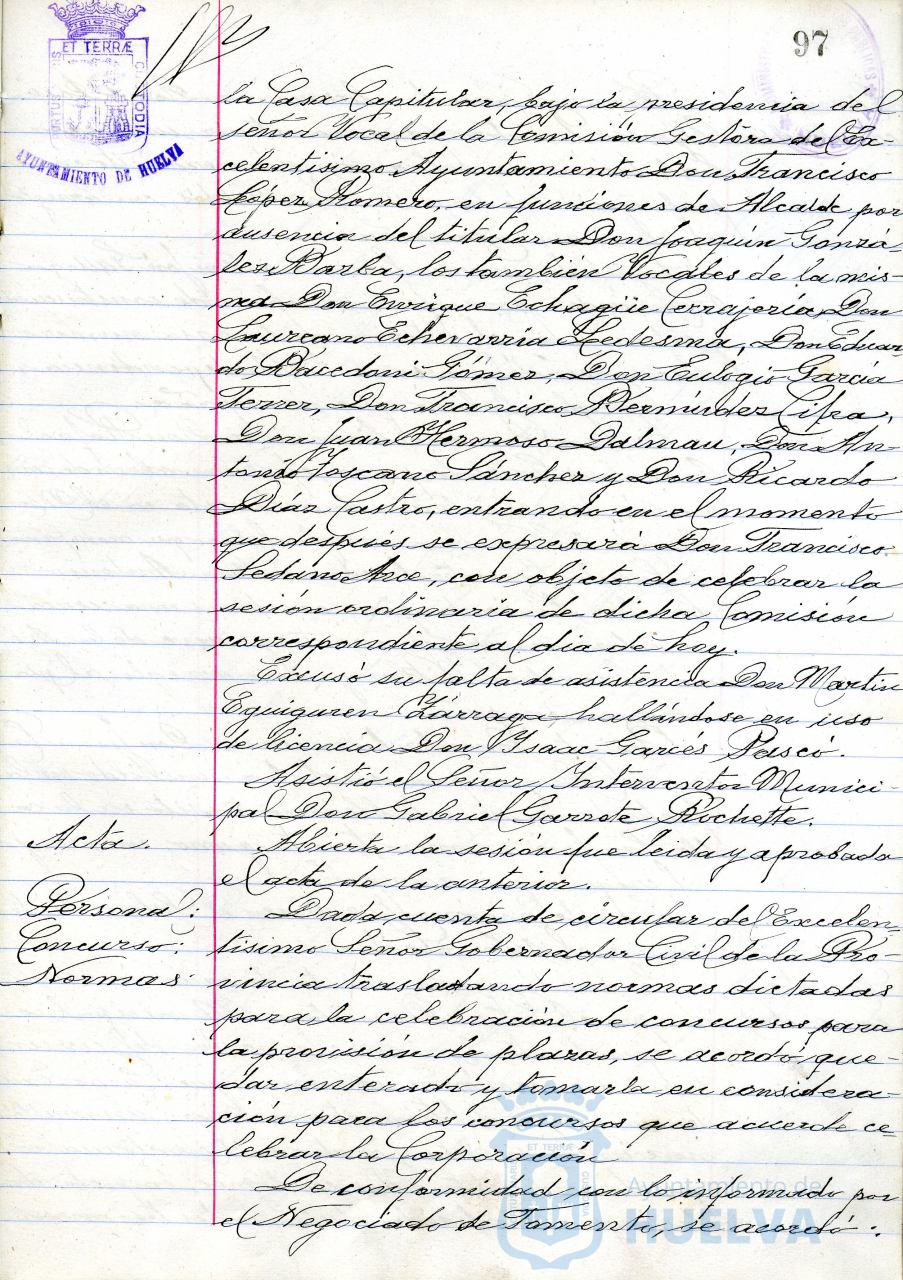 97
ET TERRÆ
CUSTODIA
AYUNTAMIENTO DE HUELVA
la Casa Capitular, bajo la presidencia del
señor Vocal de la Comisión Gestóra del Ex-
celentisimo Ayuntamiento Don Francisco
López Romero, en funciones de Alcalde por
ausencia del titular Don Joaquín Gonzá-
lez Barba, los también Vocales de la mis-
ma Don Enrique Echagüe Cerrajería, Don
Laureano Echevarría Ledesma, Don Eduar
do Bacedoni Gómez, Don Eulogio García
Ferrer, Don Francisco Bermúdez Cifra,
Don Juan Hermoso Dalmau, Don An-
tonio Toscano Sánchez y Don Ricardo
Díaz Castro, entrando en el momento
que después se expresará Don Francisco
Sedano Arce, con objeto de celebrar la
sesión ordinaria de dicha Comisión
correspondiente al dia de hoy.
Excusó su falta de asistencia Don Martin
Eguiguren Zárraga hallándose en uso
de licencia Don Isaac Garcés Pascó.
Asistió el Señor Interventor Munici-
pal Don Gabriel Garrote Rochette.
Acta.
Abierta la sesión fue leida y aprobada
el acta de la anterior.
Personal:
Concurso:
Normas
Dada cuenta de circular del Excelen-
tisimo Señor Gobernador Civil de la Pro-
vincia trasladando normas dictadas
para la celebración de concursos para
la provisión de plazas, se acordó que-
dar enterado y tomarla en considera-
ción para los concursos que acuerde ce-
lebrar la Corporación
De conformidad con lo informado por
el Negociado de Fomento, se acordó:
Ayuntamiento de
HUELVA